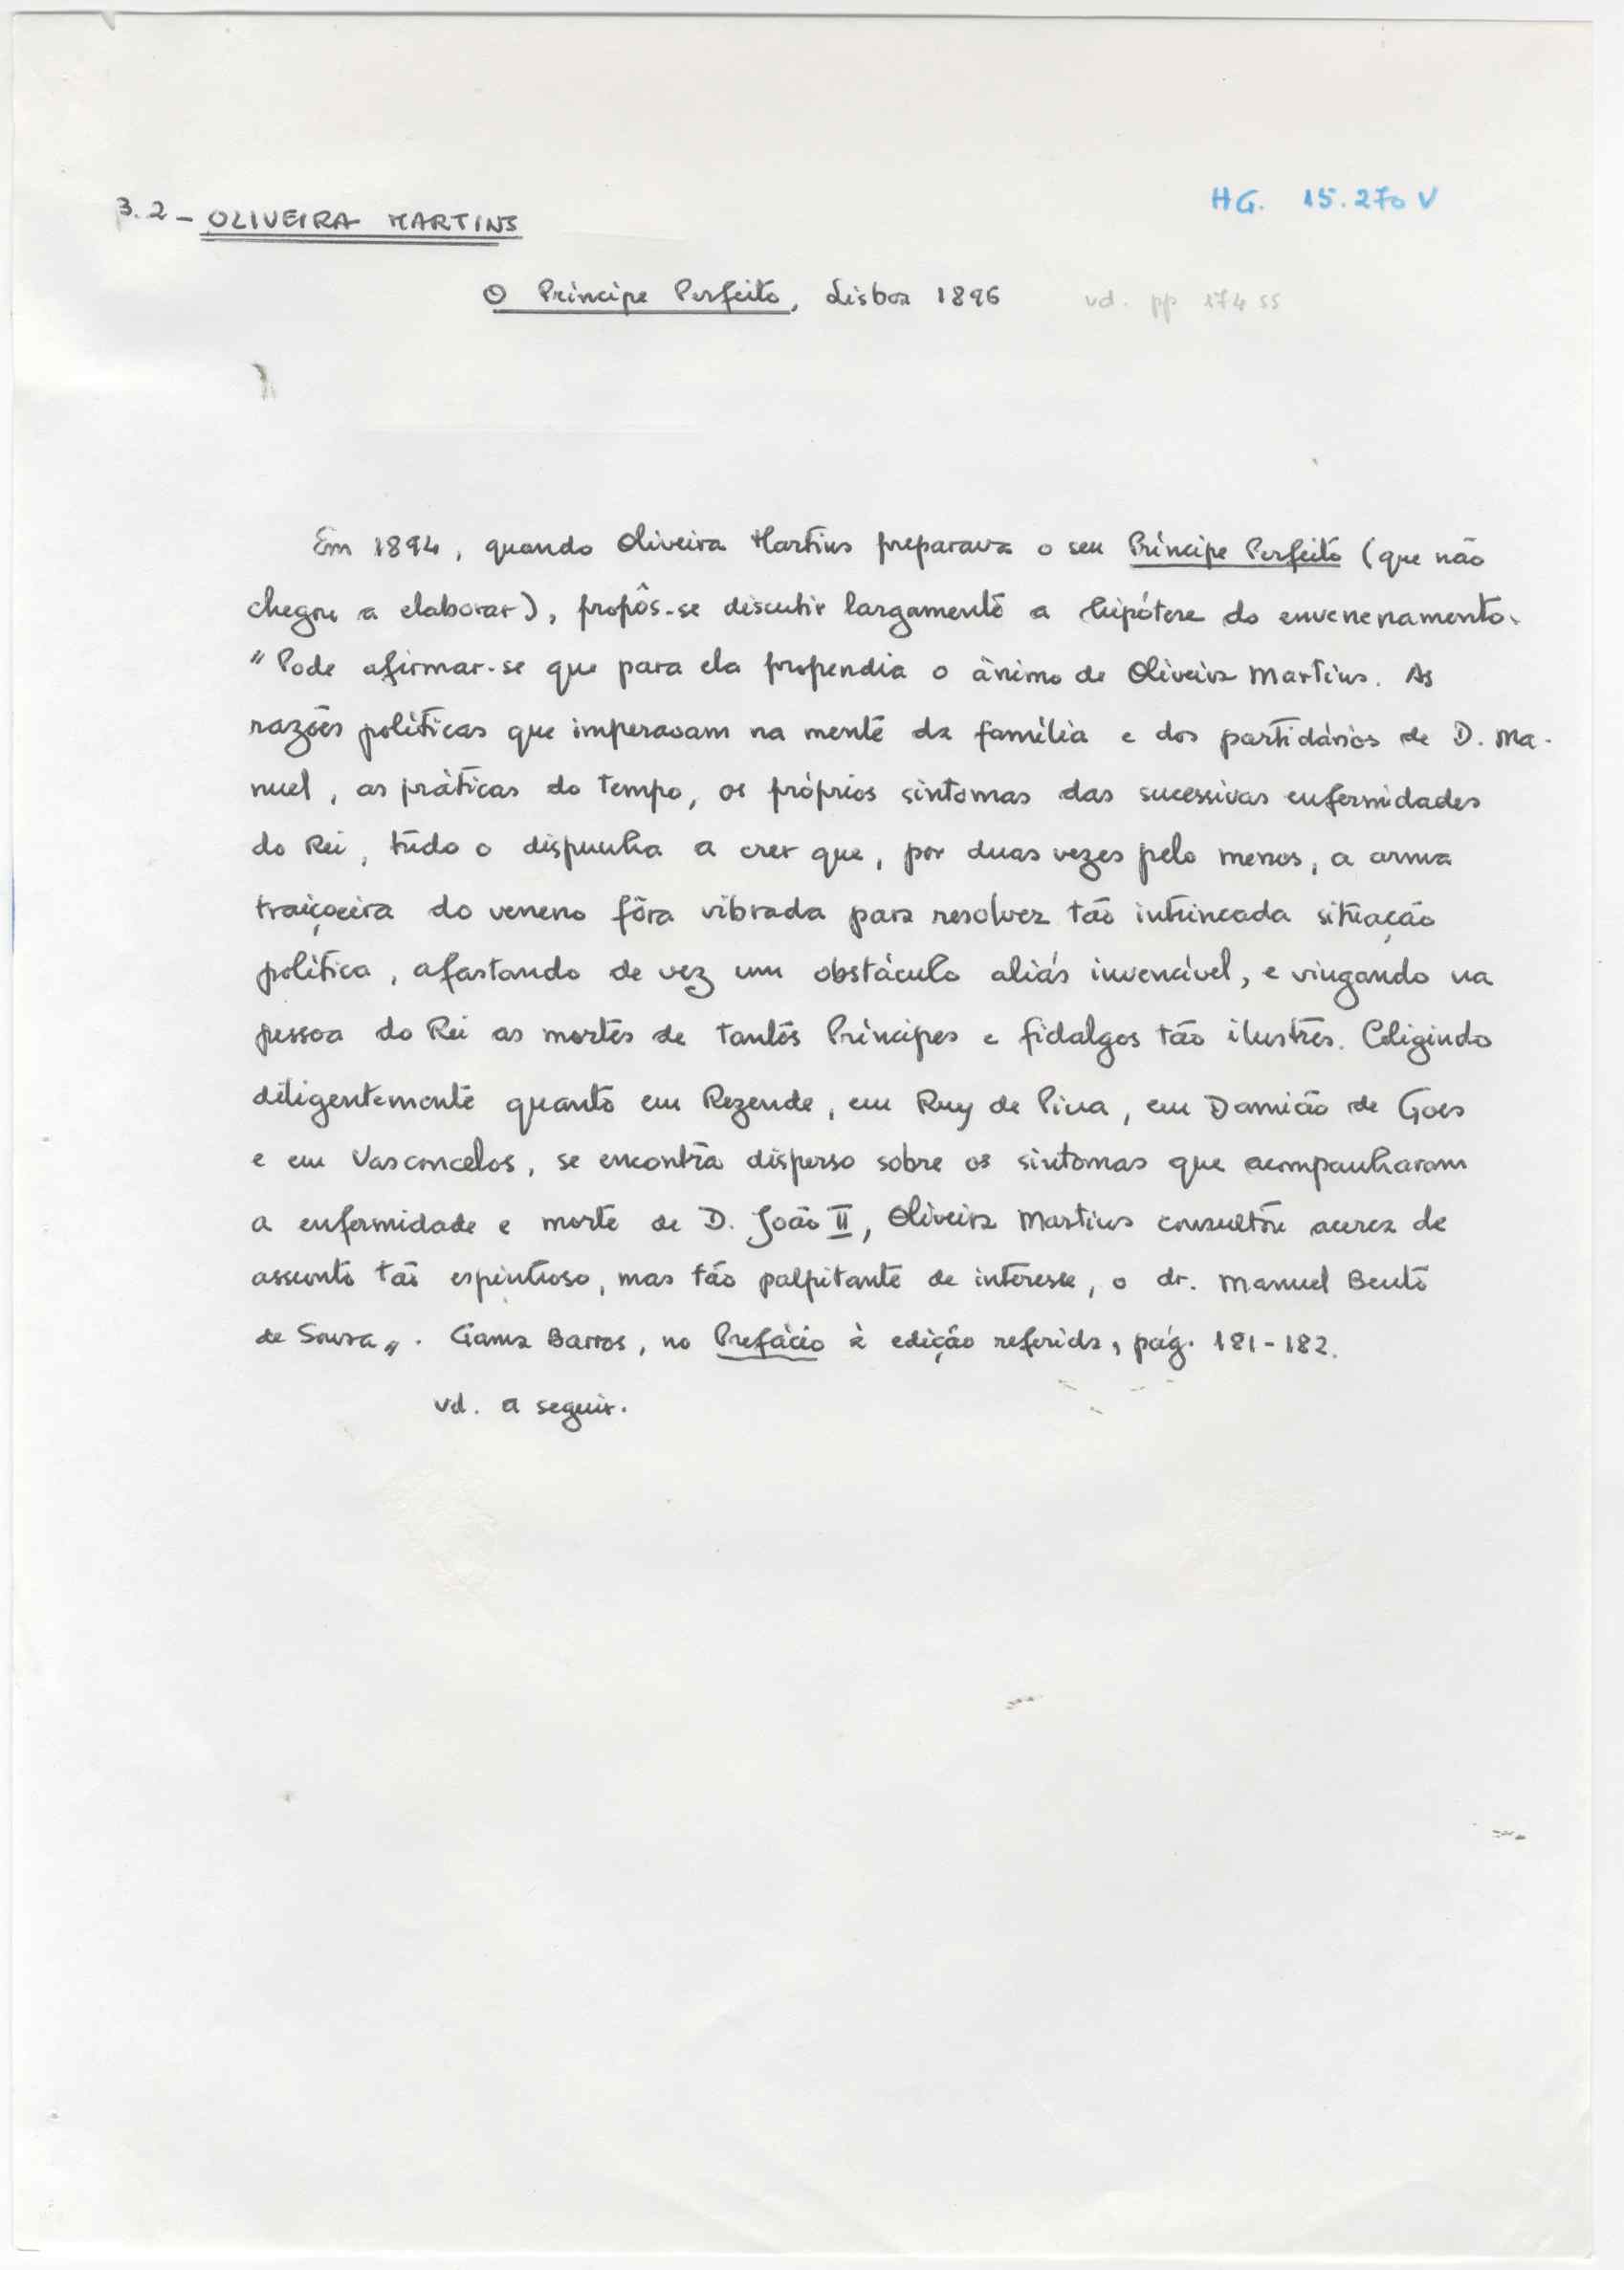 HG. 15.270 V
3.2 - OLIVEIRA MARTINS
O Príncipe Perfeito, Lisboa 1896 vd. pp 174 ss
Em 1894, quando Oliveira Martins preparava o seu Príncipe Perfeito (que não
chegou a elaborar), propôs-se discutir largamente a hipótese do envenenamento.
"Pode afirmar-se que para ela propendia o ânimo de Oliveira Martins. As
razões políticas que imperavam na mente da família e dos partidários de D. Ma-
nuel, as práticas do tempo, os próprios sintomas das sucessivas enfermidades
do Rei, tudo o dispunha a crer que, por duas vezes pelo menos, a arma
traiçoeira do veneno fôra vibrada para resolver tão intrincada situação
política, afastando de vez um obstáculo aliás invencível, e vingando na
pessoa do Rei as mortes de tantos Príncipes e fidalgos tão ilustres. Coligindo
diligentemente quanto em Rezende, em Ruy de Pina, em Damião de Goes
e em Vasconcelos, se encontra disperso sobre os sintomas que acompanharam
a enfermidade e morte de D. João II, Oliveira Martins consultou acerca de
assunto tão espinhoso, mas tão palpitante de interesse, o dr. Manuel Bento
de Sousa". Gama Barros, no Prefácio à edição referida, pág. 181-182.
vd. a seguir.